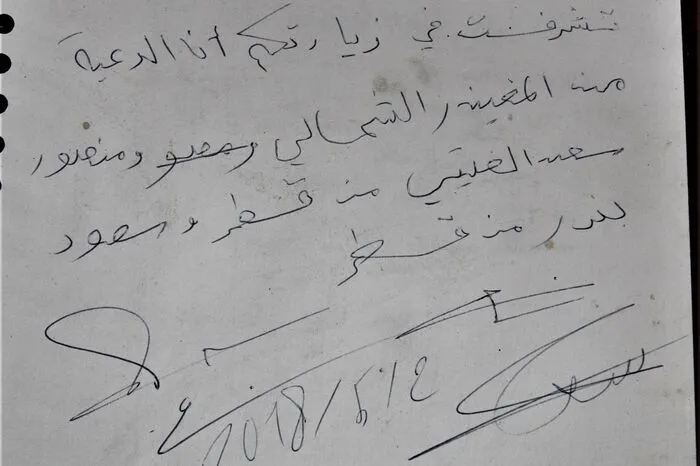 تشرفت في زيارتكم أنا الدعية
من المغيندر الشمالي ومنصور
سعد العتيبي من قطر وسعود
بندر من قطر
2018/5/2